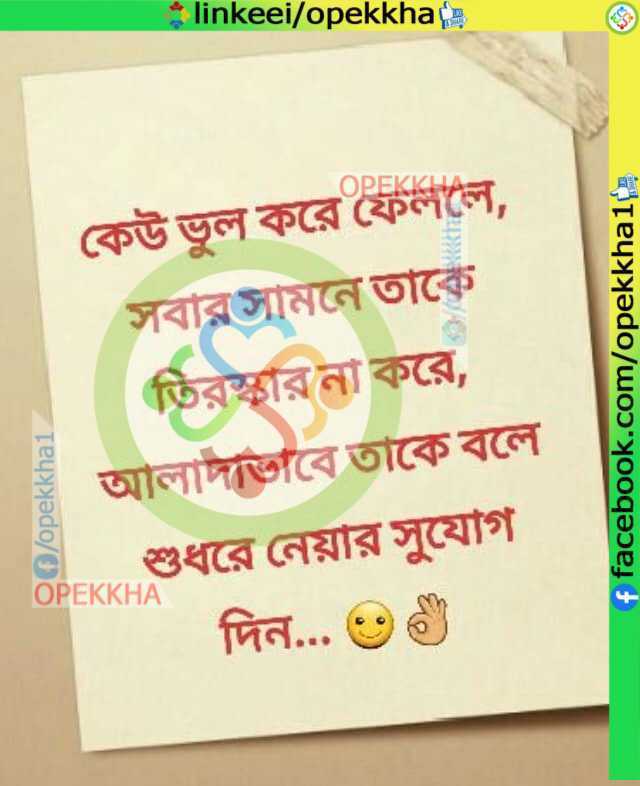 linkeei/opekkha
OPEKKHA
কেউ ভুল করে ফেললে,
সবার সামনে তাকে
তিরস্কার না করে,
আলাদাভাবে তাকে বলে
শুধরে নেয়ার সুযোগ
দিন... 🙂👌
/opekkha1
OPEKKHA
facebook.com/opekkha1